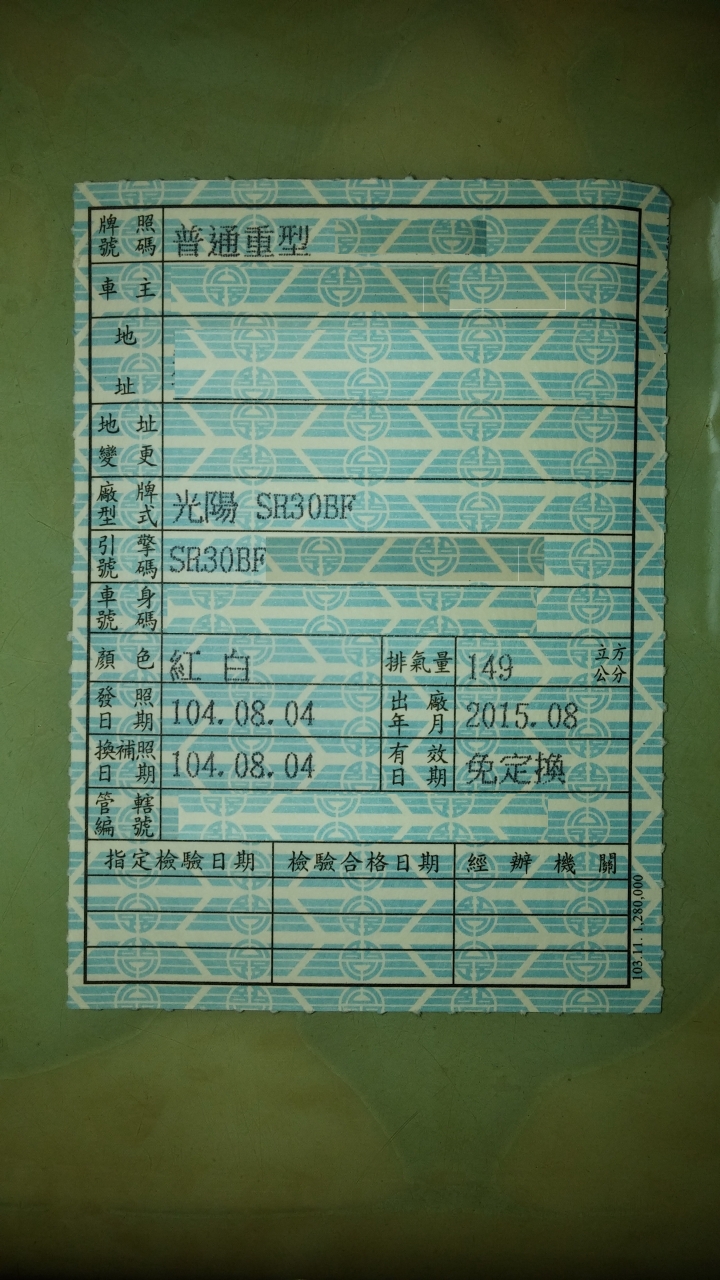 牌照號碼 普通重型
車主
地址
地址變更
廠牌型式 光陽 SR30BF
引擎號碼 SR30BF
車身號碼
顏色 紅白 排氣量 149 立方公分
發照日期 104.08.04 出廠年月 2015.08
換補照日期 104.08.04 有效日期 免定換
管轄編號
指定檢驗日期 檢驗合格日期 經辦機關
103.11. 1,280,000